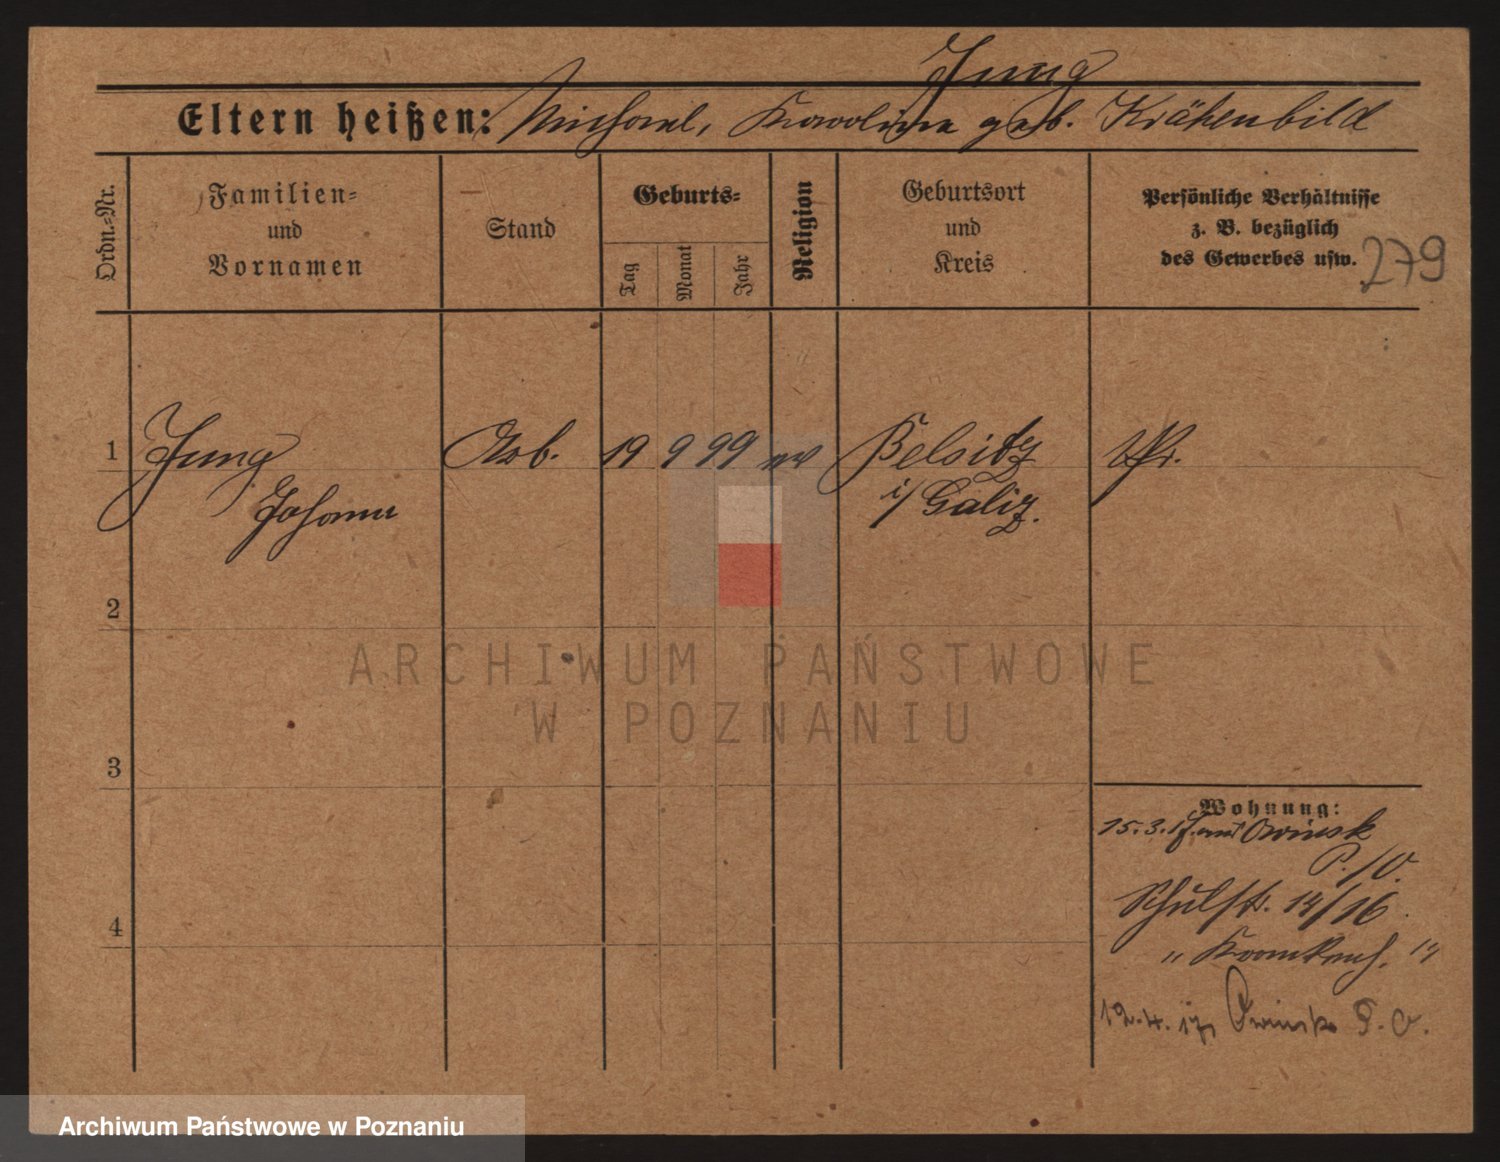 Jung
Eltern heißen: Michael, Karoline geb. Krähenbild
Ordn.-Nr.
Familien-
und
Vornamen
Stand
Geburts-
Tag
Monat
Jahr
Religion
Geburtsort
und
Kreis
Persönliche Verhältnisse
z. B. bezüglich
des Gewerbes usw.
279
1 Jung Arb. 19 9 99 ev Belsitz Pr.
Johann i/ Galiz.
2
3
4
Wohnung:
15.3.17. aus Owinsk
P./O.
Schulstr. 14/16
" Krankenh. "
12.4.17, Owinsk P. O.
ARCHIWUM PAŃSTWOWE
W POZNANIU
Archiwum Państwowe w Poznaniu